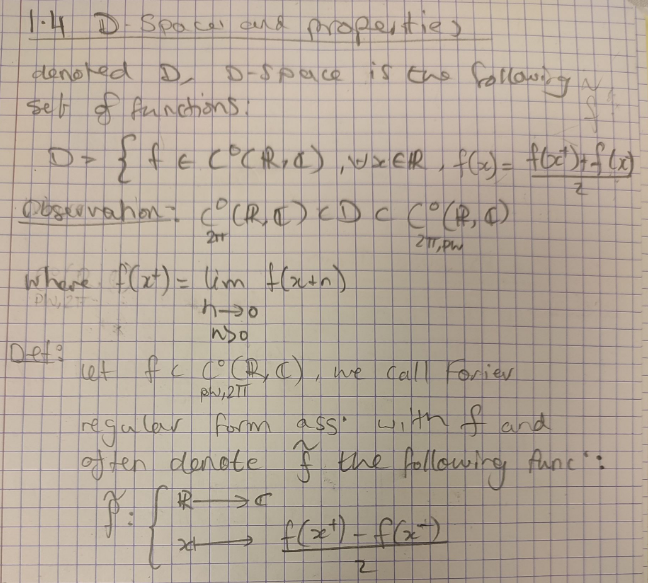 1.4 D-Space and properties
denoted D, D-space is the following
set of functions:
D = { f ∈ C⁰(ℝ, ℂ), ∀x∈ℝ, f(x) = f(x⁺)+f(x)/2
Observation: C⁰_2π(ℝ, ℂ) ⊂ D ⊂ C⁰_2π,pw(ℝ, ℂ)
where f(x⁺) = lim f(x+h)
h→0
h>0
Def:
let f ∈ C⁰_pw,2π(ℝ, ℂ), we call Forier
regular form ass. with f and
often denote f̃ the following func°:
f̃: { ℝ ⟶ ℂ
x ⟼ f(x⁺) - f(x⁻)/2